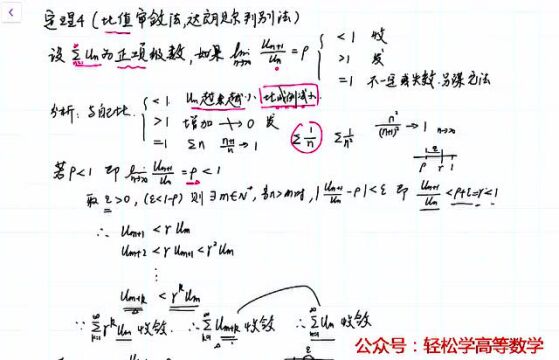 定理4 (比值审敛法,达朗贝尔判别法)
设 Σ_{n=1}^∞ Un 为正项级数, 如果 lim_{n→∞} U_{n+1}/U_n = ρ { <1 收
>1 发
=1 不一定 失效.另择方法
分析: 与自己比. { <1 Un 越来越小. 比例减小.
>1 增加 ↛ 0 发
=1 Σn (n+1)/n → 1 Σ1/n Σ1/n² n²/(n+1)² → 1 n→∞
若 ρ<1 即 lim_{n→∞} U_{n+1}/U_n = ρ < 1
ρ r 1
取 ε>0, (ε<1-ρ) 则 ∃m∈N⁺, 当n>m时, |U_{n+1}/U_n - ρ|<ε 即 U_{n+1}/U_n < ρ+ε = r < 1
∴ U_{m+1} < r U_m
U_{m+2} < r U_{m+1} < r² U_m
⋮
U_{m+k} < r^k U_m
∵ Σ_{k=1}^∞ r^k U_m 收敛. ∴ Σ_{k=1}^∞ U_{m+k} 收敛 ∴ Σ_{n=1}^∞ Un 收敛
公众号：轻松学高等数学